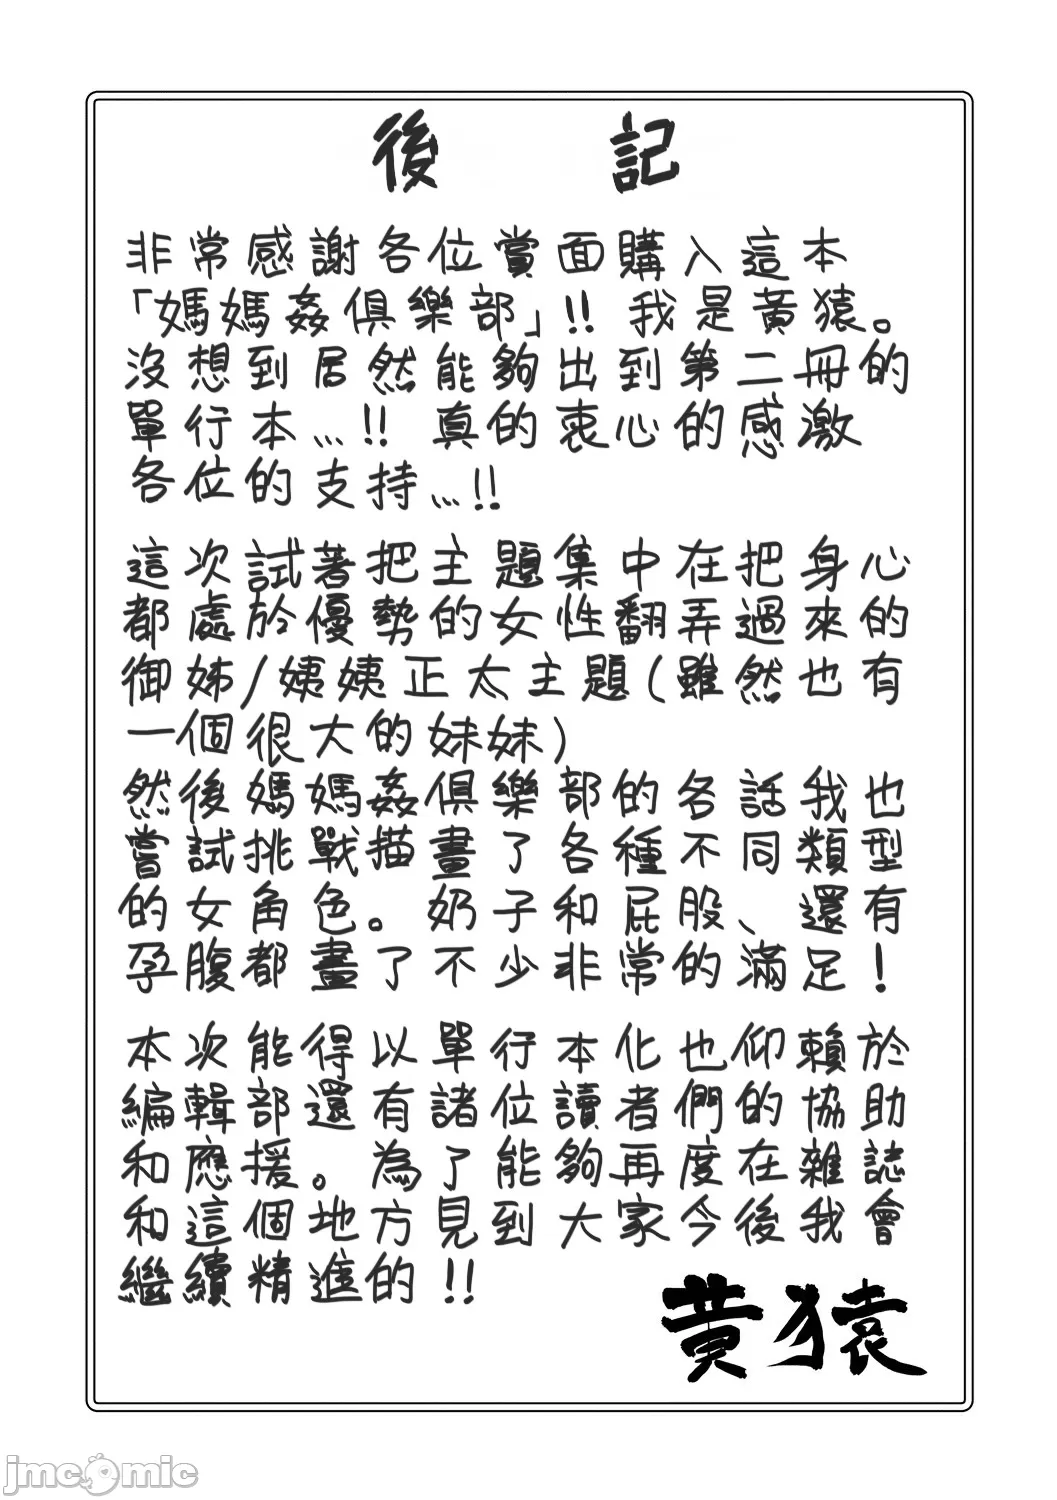 後記
非常感謝各位賞面購入這本
「媽媽姦俱樂部」!! 我是黃猿。
沒想到居然能夠出到第二冊的
單行本…!! 真的衷心的感激
各位的支持…!!
這次試著把主題集中在把身心
都處於優勢的女性翻弄過來的
御姊/姨姨正太主題(雖然也有
一個很大的妹妹)
然後媽媽姦俱樂部的各話我也
嘗試挑戰描畫了各種不同類型
的女角色。奶子和屁股、還有
孕腹都畫了不少非常的滿足!
本次能得以單行本化也仰賴於
編輯部還有諸位讀者們的協助
和應援。為了能夠再度在雜誌
和這個地方見到大家今後我會
繼續精進的!!
黃猿
jmcomic